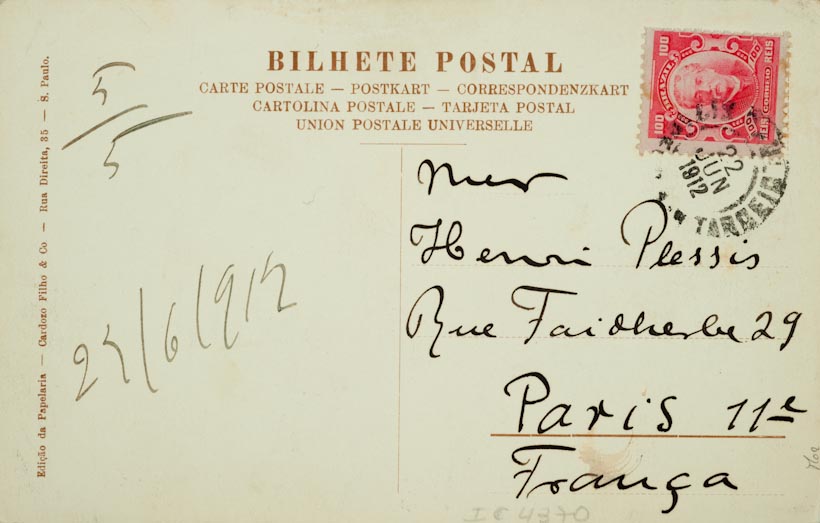 BILHETE POSTAL
CARTE POSTALE — POSTKART — CORRESPONDENZKART
CARTOLINA POSTALE — TARJETA POSTAL
UNION POSTALE UNIVERSELLE
Edição da Papelaria — Cardozo Filho & Co — Rua Direita, 35 — S. Paulo.
5/5
100 REIS
100 REIS
CORREIO
22
JUN
1912
Henri Plessis
Rue Faidherbe 29
Paris 11e
França
I C 4370